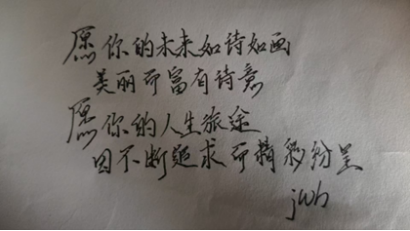 愿你的未来如诗如画
美丽而富有诗意
愿你的人生旅途
因不断追求而精彩纷呈
jwh